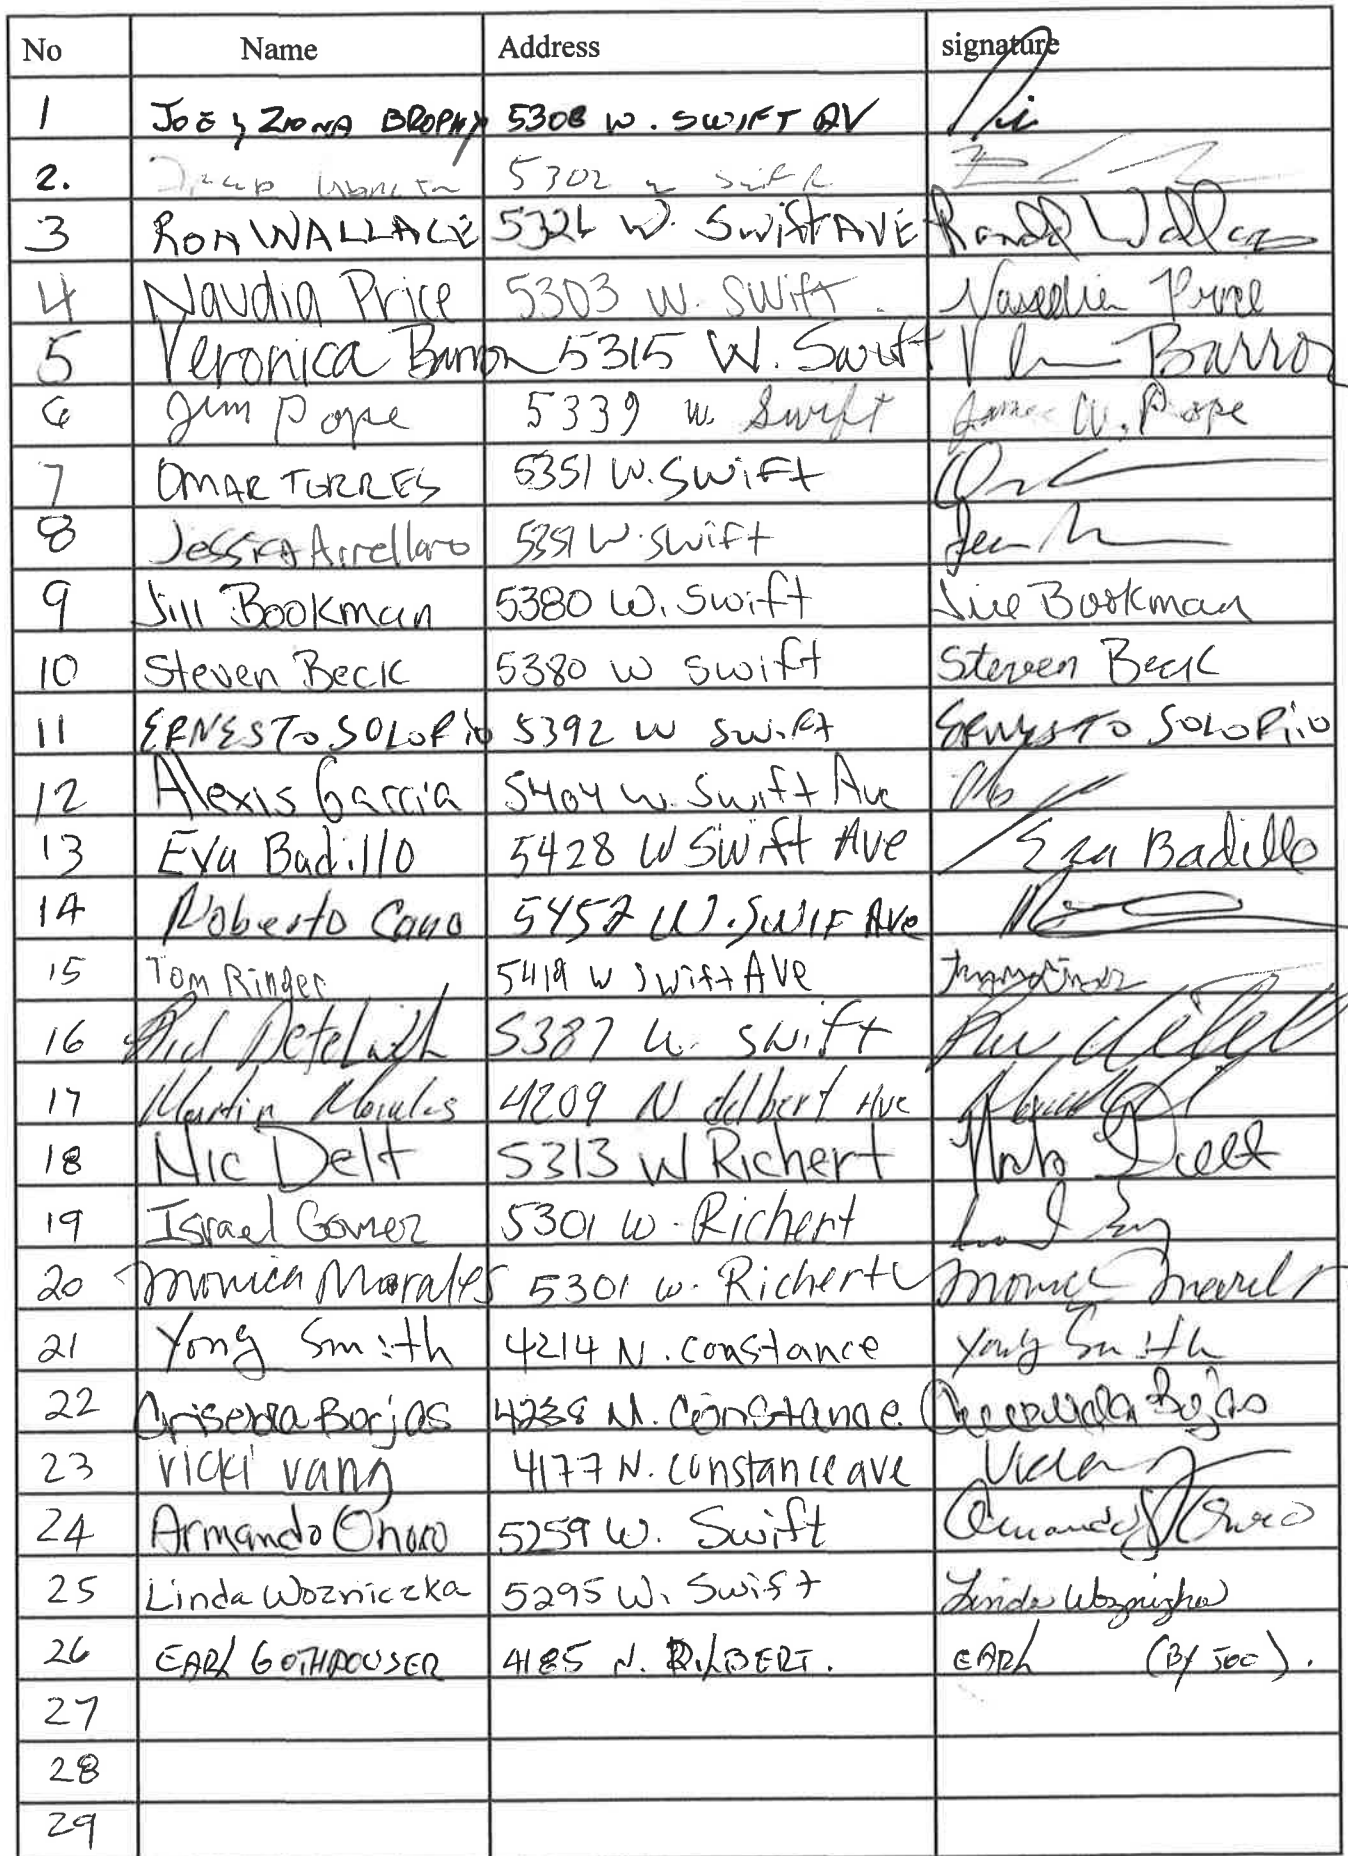 No Name Address signature
1 JOE & ZIONA BROPHY 5308 W. SWIFT AV
2. 5302 W Swift
3 RON WALLACE 5326 W. Swift AVE Ronald Wallace
4 Naudia Price 5303 W. Swift. Naudia Price
5 Veronica Barron 5315 W. Swift V Barron
6 Jim Pope 5339 W. Swift James W. Pope
7 OMAR TORRES 5351 W. Swift
8 Jessica Arrellano 5351 W. Swift
9 Jill Bookman 5380 W. Swift Jill Bookman
10 Steven Beck 5380 W Swift Steven Beck
11 ERNESTO SOLORIO 5392 W Swift ERNESTO SOLORIO
12 Alexis Garcia 5404 W. Swift Ave
13 Eva Badillo 5428 W Swift Ave Eva Badillo
14 Roberto Cano 5452 W. SWIF Ave
15 Tom Ringer 5419 W Swift AVE
16 5387 W. Swift
17 Martin Morales 4209 N delbert Ave
18 Nic Delt 5313 W Richert
19 Israel Gomez 5301 W. Richert
20 Monica Morales 5301 W. Richert Monica
21 Yong Smith 4214 N. Constance Yong Smith
22 Griselda Borjas 4238 N. Constance Borjas
23 Vicki Vang 4177 N. Constance ave
24 Armando Onoro 5259 W. Swift Armando
25 Linda Wozniczka 5295 W. Swift Linda Wozniczka
26 EARL 4185 N. EARL (By JOE).
27
28
29